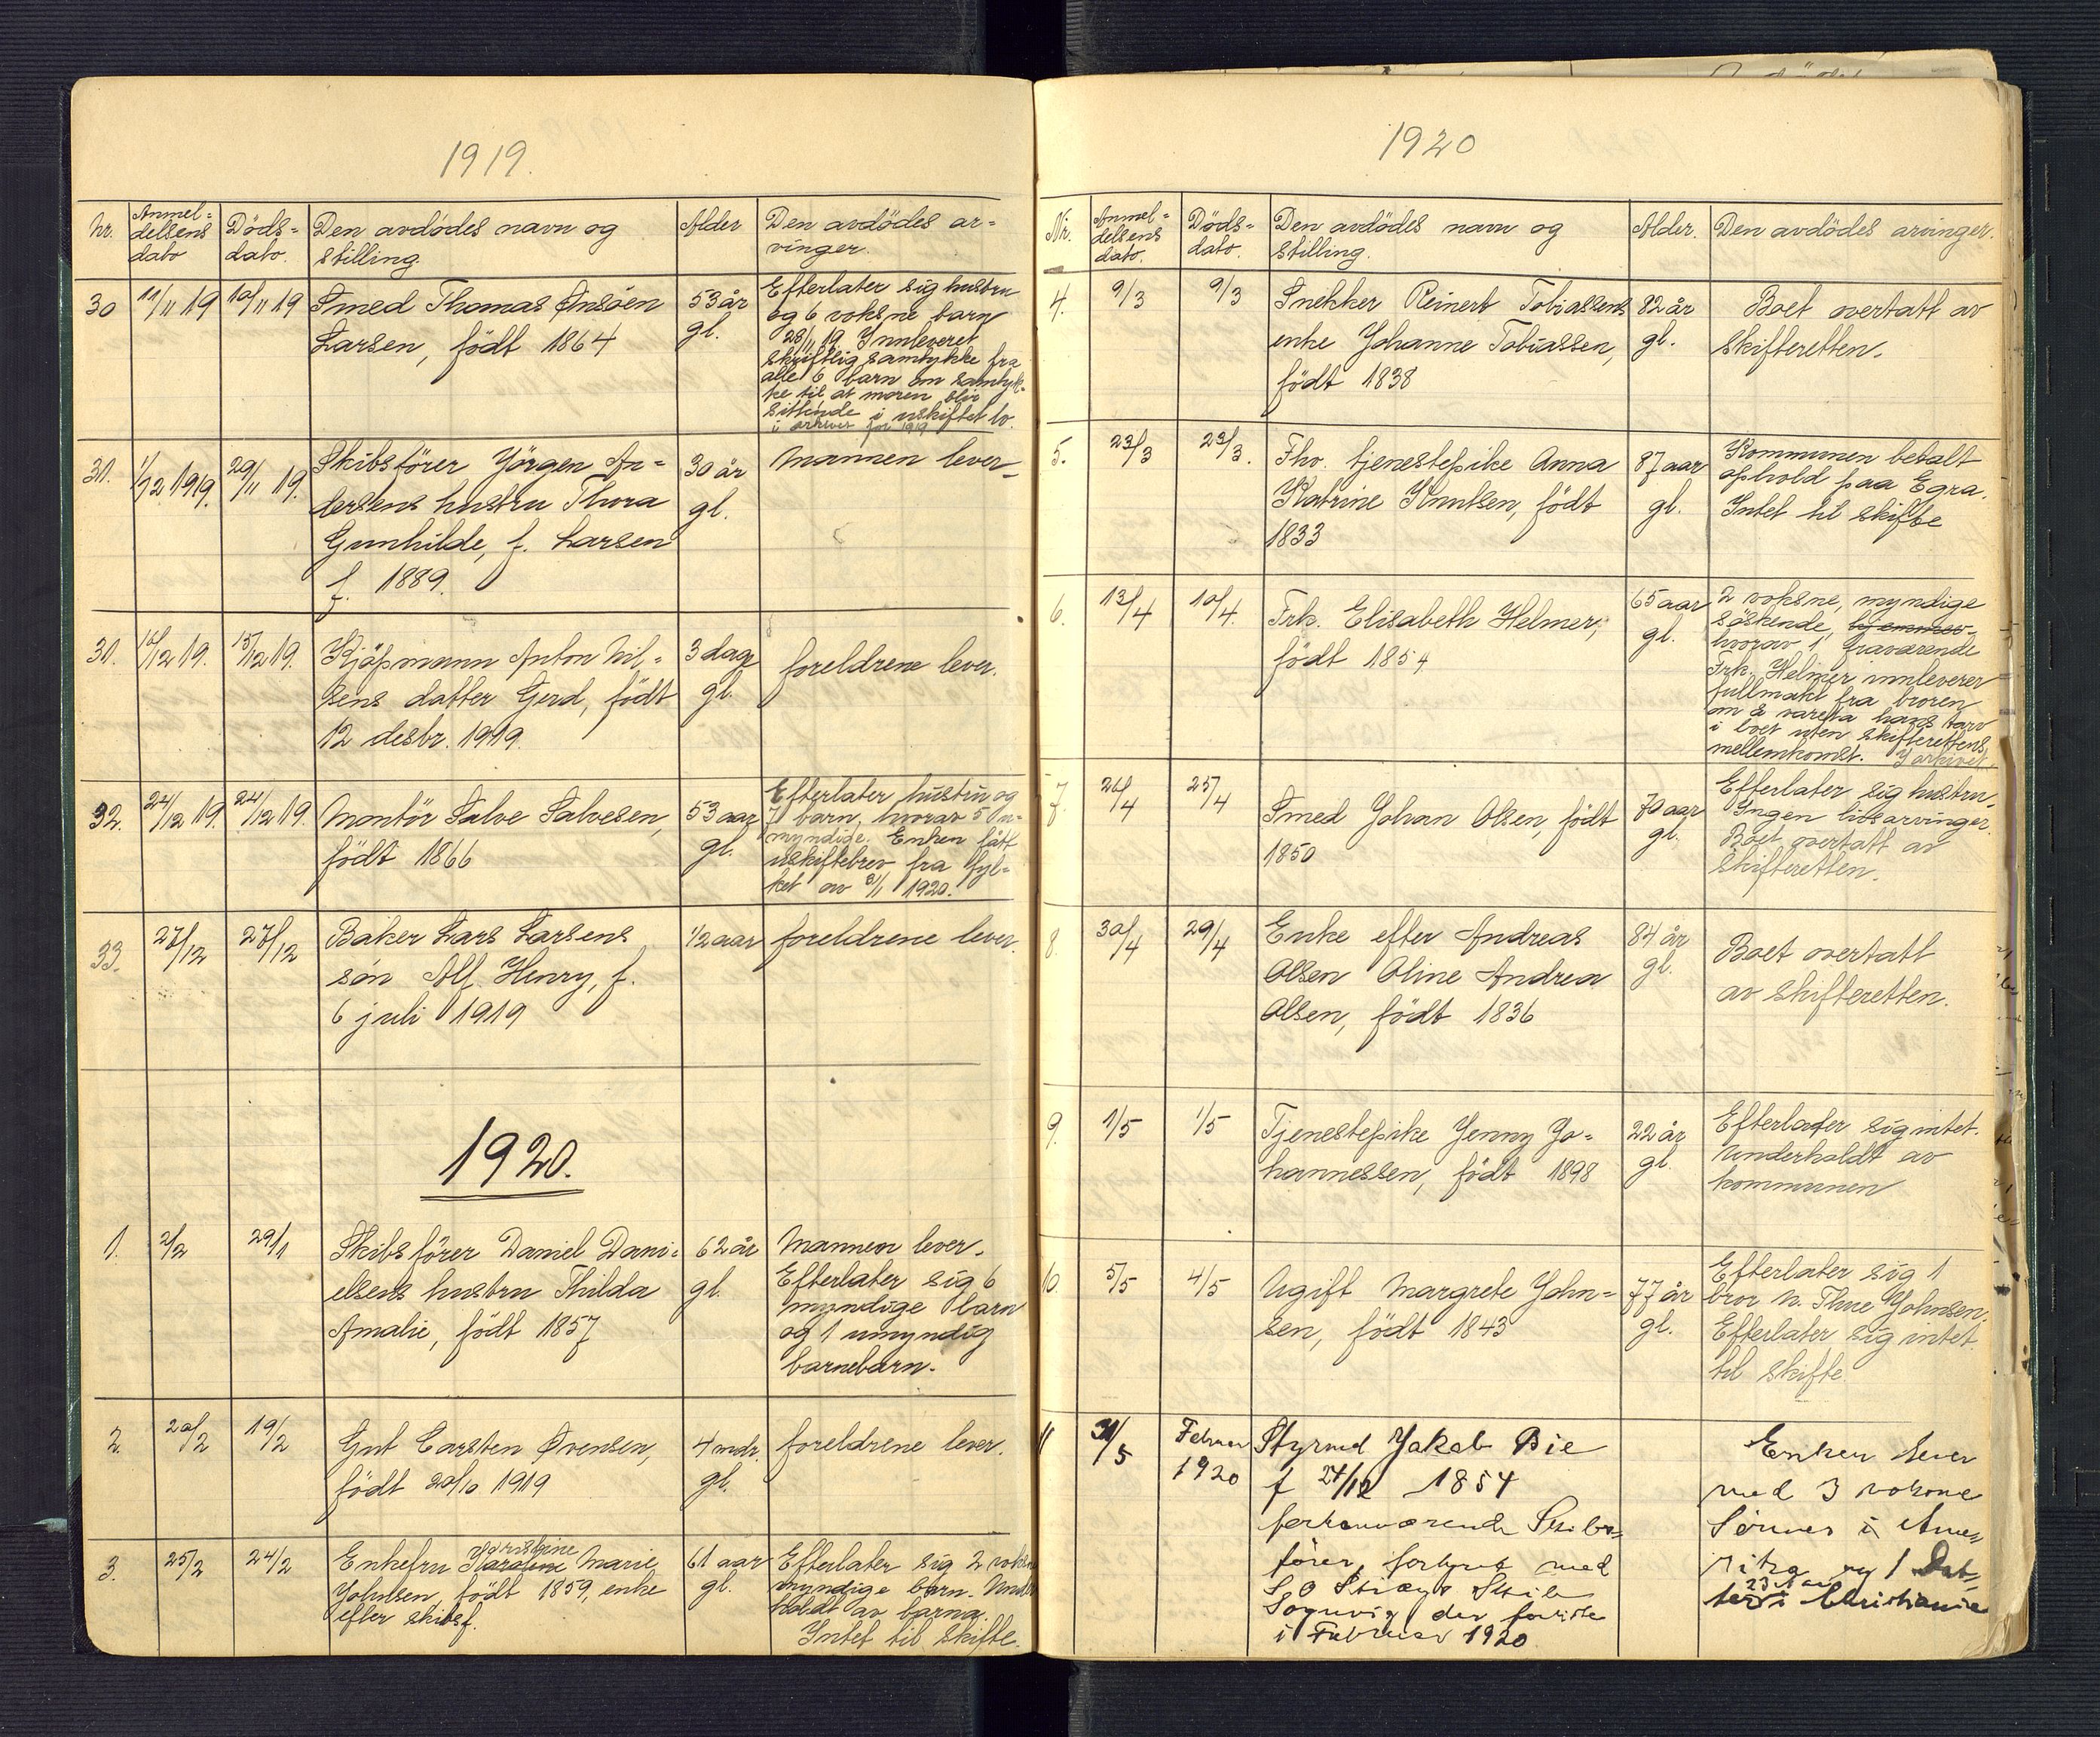 1919.
Nr.
Anmel=
delsens
dato
Döds=
dato.
Den avdödes navn og
stilling.
Alder
Den avdödes ar=
vinger.
30
11/11 19
10/11 19
Smed Thomas Ansöen
Larsen, födt 1864
53 år
gl.
Efterlater sig hustru
og 6 voksne barn
28/11 19 Innleveret
skriftlig samtykke fra
alle 6 barn om samtyk=
ke til at moren blir
sittende i uskiftet bo.
i arkivet for 1919
31.
1/12 1919.
29/11 19.
Skibsförer Jörgen An=
dersens hustru Thora
Gunhilde, f. Larsen
f. 1889.
30 år
gl.
Mannen lever
31.
16/12 19.
15/12 19.
Kjöpmann Anton Nil=
sens datter Gerd, födt
12 desbr. 1919.
3 dage
gl.
foreldrene lever.
32.
24/12 19.
24/12 19.
Montör Salve Salvesen,
födt 1866
53 aar
gl.
Efterlater hustru og
7 barn, hvorav 5 u=
myndige. Enken fått
uskiftebrev fra fyl=
ket av 8/1 1920.
33.
27/12
27/12
Baker Lars Larsens
sön Alf Henry, f.
6 juli 1919
1/2 aar
foreldrene lever.
1920.
1.
2/2
29/1
Skibsförer Daniel Dani=
elsens hustru Thilda
Amalie, födt 1857
62 år
gl.
Mannen lever.
Efterlater sig 6
myndige barn
og 1 umyndig
barnebarn.
2.
20/2
19/2
Gut Carsten Svensen,
födt 20/10 1919
4 mdr.
gl.
foreldrene lever.
3.
25/2
24/2
Enkefru Karoline Marie
Johnsen, födt 1859, enke
efter skibsf.
61 aar
gl.
Efterlater sig 2 voksne
myndige barn. Under
holdt av barna.
Intet til skifte.
1920
Nr.
Anmel=
delsens
dato.
Döds=
dato.
Den avdödes navn og
stilling.
Alder.
Den avdödes arvinger.
4.
9/3
9/3
Snikker Reinert Tobiassens
enke Johanne Tobiassen,
födt 1838
82 år
gl.
Boet overtatt av
skifteretten.
5.
23/3
23/3.
Fhv. tjenestepike Anna
Katrine Knutsen, födt
1833
87 aar
gl.
Kommunen betalt
ophold paa Egra.
Intet til skifte
6.
13/4
10/4.
Frk. Elisabeth Helmer,
födt 1854
65 aar
gl.
2 voksne, myndige
söskende,
hvorav 1 fraværende
Frk. Helmer innleverer
fullmakt fra broren
om å vareta hans tarv
i boet uten skifterettens
mellemkomst. I arkivet.
7.
26/4
25/4
Smed Johan Olsen, födt
1850
70 aar
gl.
Efterlater sig hustru.
Ingen livsarvinger.
Boet overtatt av
skifteretten.
8
30/4
29/4
Enke efter Andreas
Olsen Oline Andrea
Olsen, födt 1836
84 år
gl.
Boet overtatt
av skifteretten.
9.
1/5
1/5
Tjenestepike Jenny Jo=
hannessen, födt 1898
22 år
gl.
Efterlater sig intet.
Underholdt av
kommunen
10
5/5
4/5
Ugift Margrete John=
sen, födt 1843
77 år
gl.
Efterlater sig 1
bror N. Thue Johnsen.
Efterlater sig intet
til skifte.
11
31/5
Februar
1920
Styrmd Jakob Bie
f 24/12 1854
forhenværende Skibs=
förer, forlyst med
Skib
Sognvig der forliste
i Februar 1920
Enken lever
med 3 voksne
Sönner i Ame=
rika og 1 Dat=
ter i Christiania